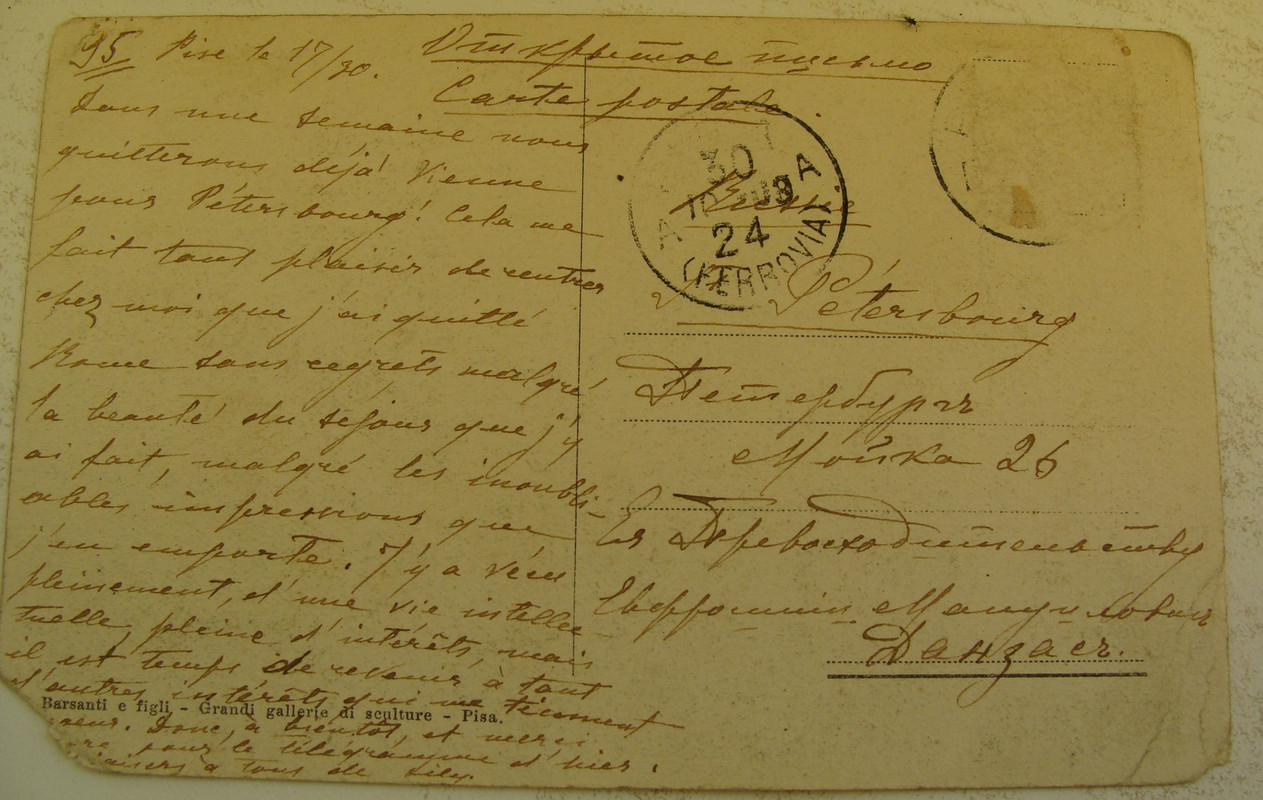 95 Pise le 17/30.
Dans une semaine nous
quitterons déjà Vienne
pour Pétersbourg! Cela me
fait tant plaisir de rentrer
chez moi que j'ai quitté
Rome sans regrets malgré
la beauté du séjour que j'y
ai fait, malgré les inoubli-
ables impressions que
j'en emporte. J'y a vécu
pleinement, d'une vie intellec
tuelle, pleine d'intérêts, mais
il est temps de revenir à tout
d'autres intérêts qui me tiennent
Donc, à bientôt, et merci
pour le télégramme d'hier.
à tous de
Barsanti e figli - Grandi gallerie di sculture - Pisa.
Открытое письмо
Carte postale
30
24
(FERROVIA)
Pétersbourg
Петербургъ
Мойка 26
Ея Превосходительству
Евфросиніи Мануиловнѣ
Данзасъ.